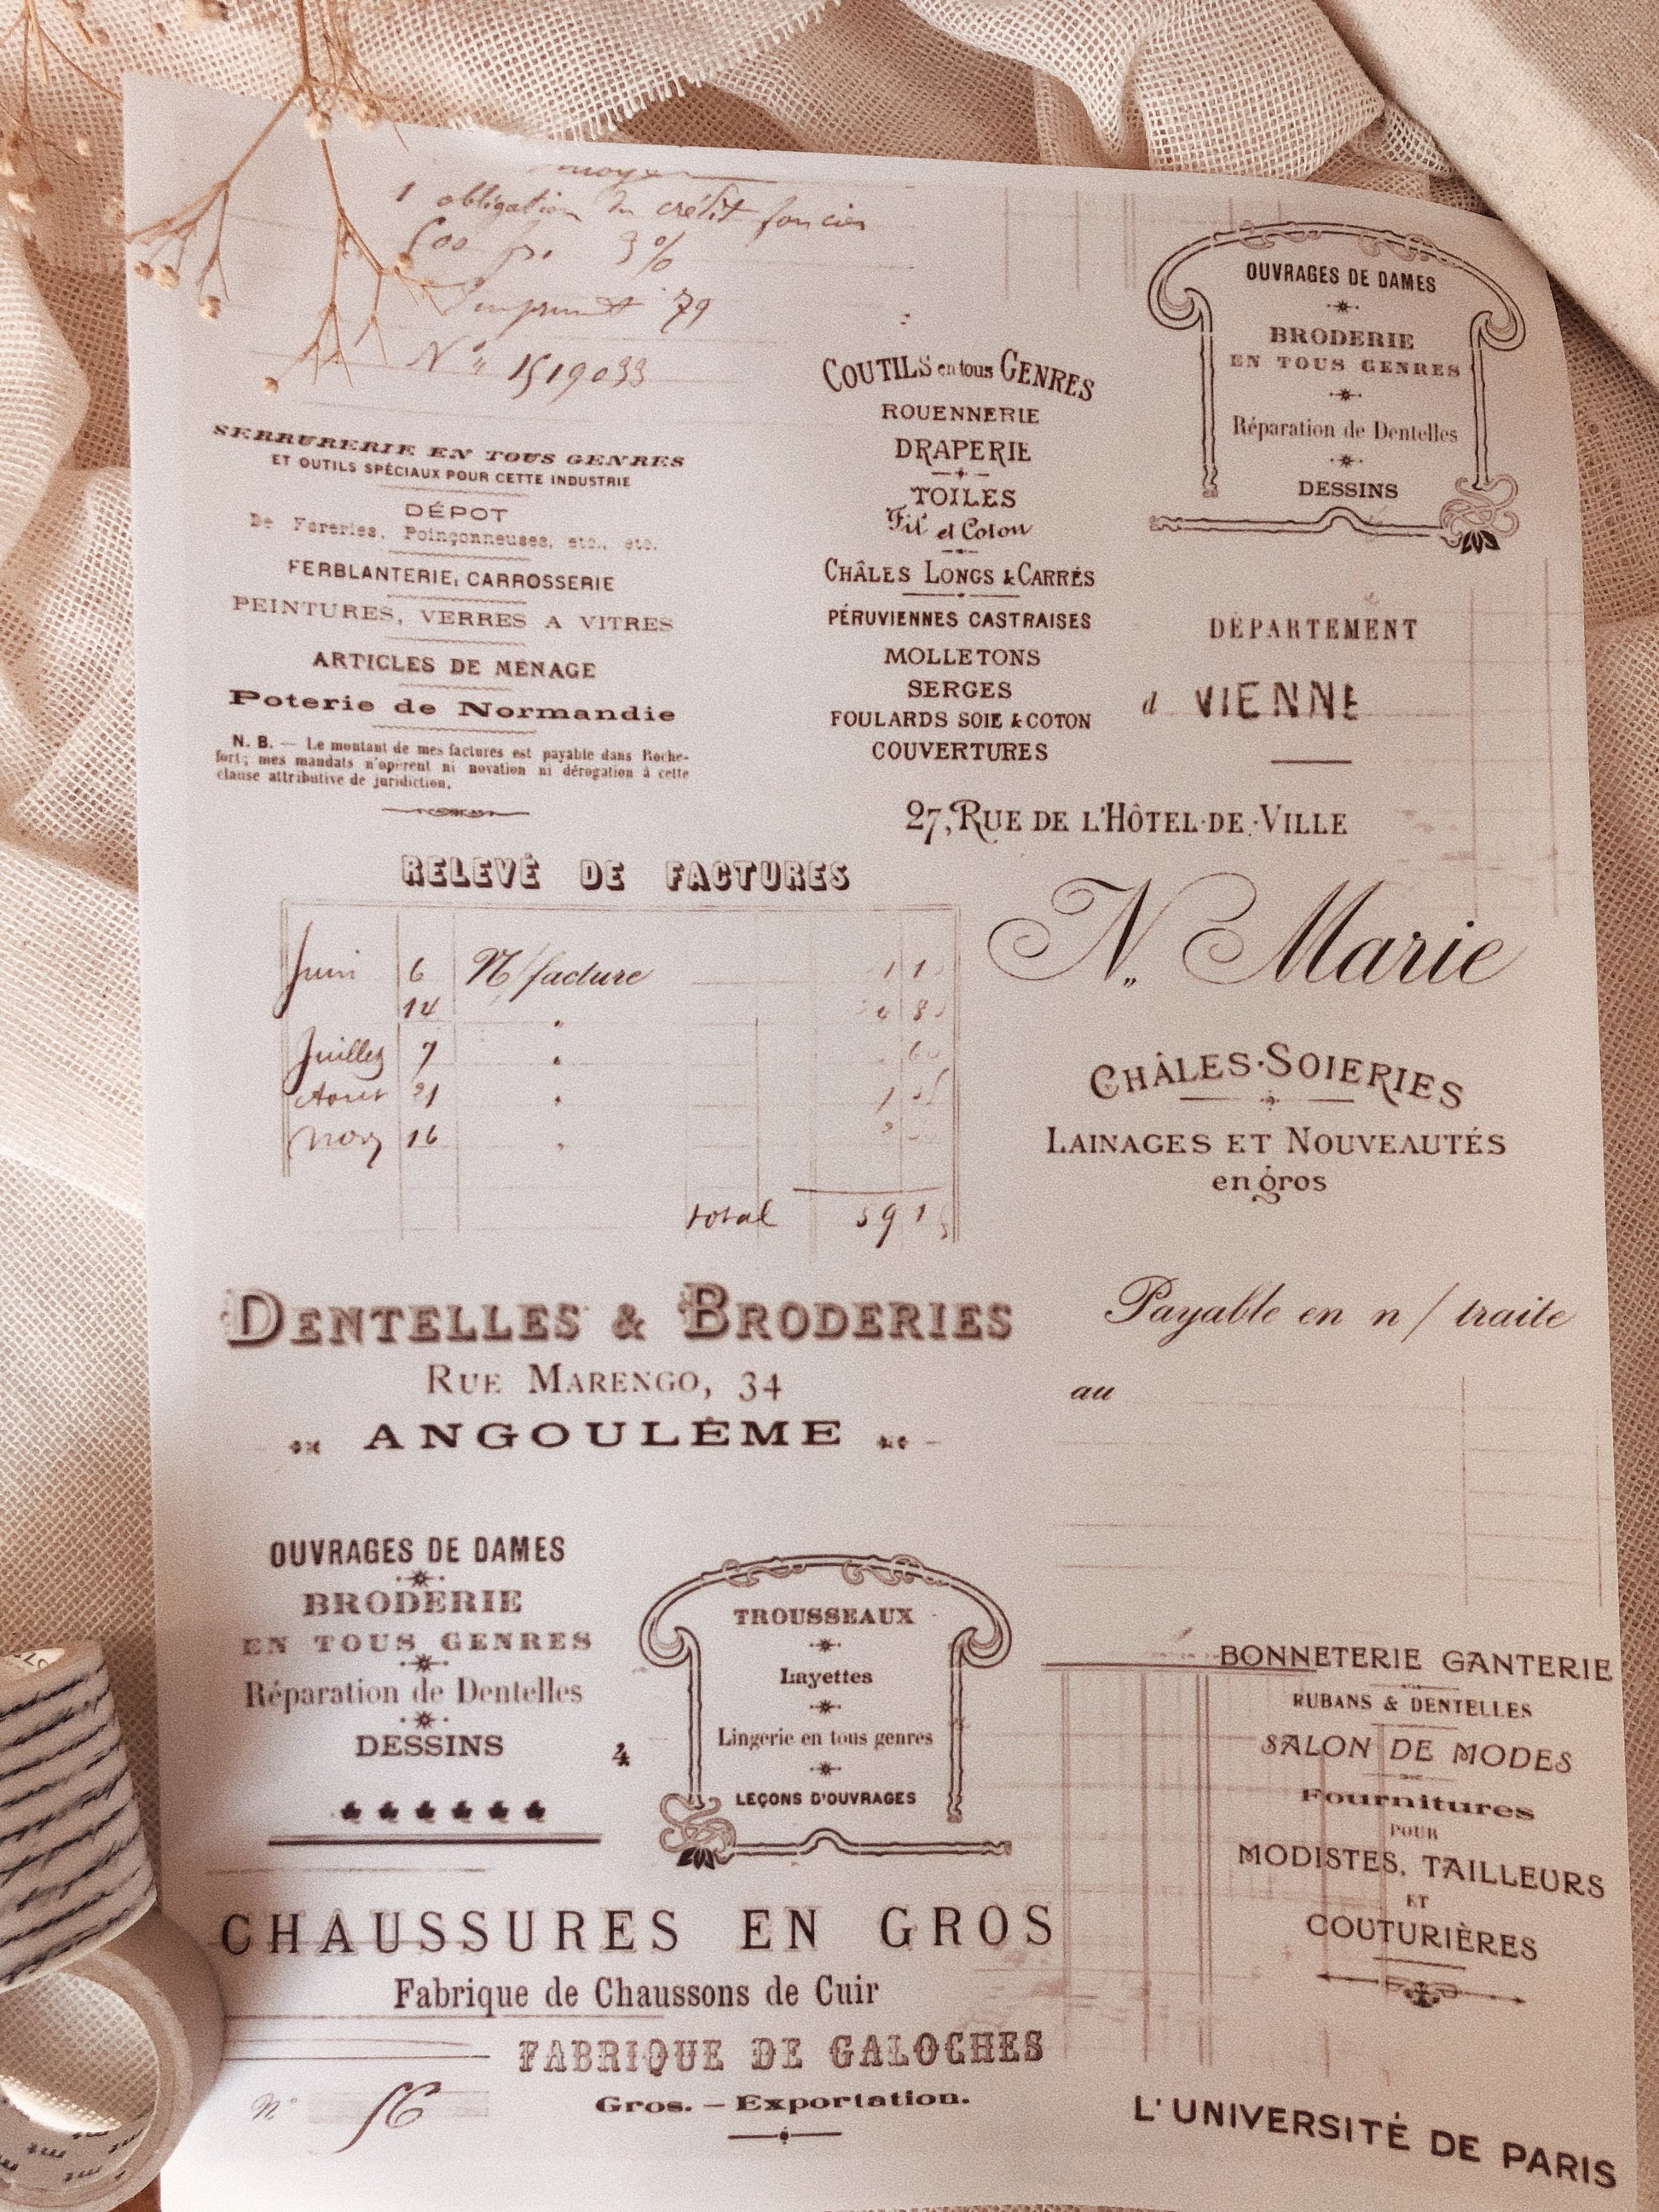 1 obligation du crédit foncier
500 fr. 3%
Emprunt 79
N° 1519033
SERRURERIE EN TOUS GENRES
ET OUTILS SPÉCIAUX POUR CETTE INDUSTRIE
DÉPOT
De Foreries, Poinçonneuses, etc., etc.
FERBLANTERIE, CARROSSERIE
PEINTURES, VERRES A VITRES
ARTICLES DE MÉNAGE
Poterie de Normandie
N. B. — Le montant de mes factures est payable dans Roche-
fort; mes mandats n'opèrent ni novation ni dérogation à cette
clause attributive de juridiction.
COUTILS en tous GENRES
ROUENNERIE
DRAPERIE
TOILES
Fil et Coton
CHÂLES LONGS & CARRÉS
PÉRUVIENNES CASTRAISES
MOLLETONS
SERGES
FOULARDS SOIE & COTON
COUVERTURES
OUVRAGES DE DAMES
BRODERIE
EN TOUS GENRES
Réparation de Dentelles
DESSINS
DÉPARTEMENT
d VIENNE
27, RUE DE L'HÔTEL-DE-VILLE
RELEVÉ DE FACTURES
Juin 6 N/facture
14
Juillet 7
Aout 21
Nov 16
total
N. Marie
CHÂLES-SOIERIES
LAINAGES ET NOUVEAUTÉS
en gros
DENTELLES & BRODERIES
RUE MARENGO, 34
ANGOULÊME
Payable en n/ traite
au
OUVRAGES DE DAMES
BRODERIE
EN TOUS GENRES
Réparation de Dentelles
DESSINS
4
TROUSSEAUX
Layettes
Lingerie en tous genres
LEÇONS D'OUVRAGES
BONNETERIE GANTERIE
RUBANS & DENTELLES
SALON DE MODES
Fournitures
POUR
MODISTES, TAILLEURS
ET
COUTURIÈRES
CHAUSSURES EN GROS
Fabrique de Chaussons de Cuir
FABRIQUE DE GALOCHES
Gros. — Exportation.
N° 56
L'UNIVERSITÉ DE PARIS